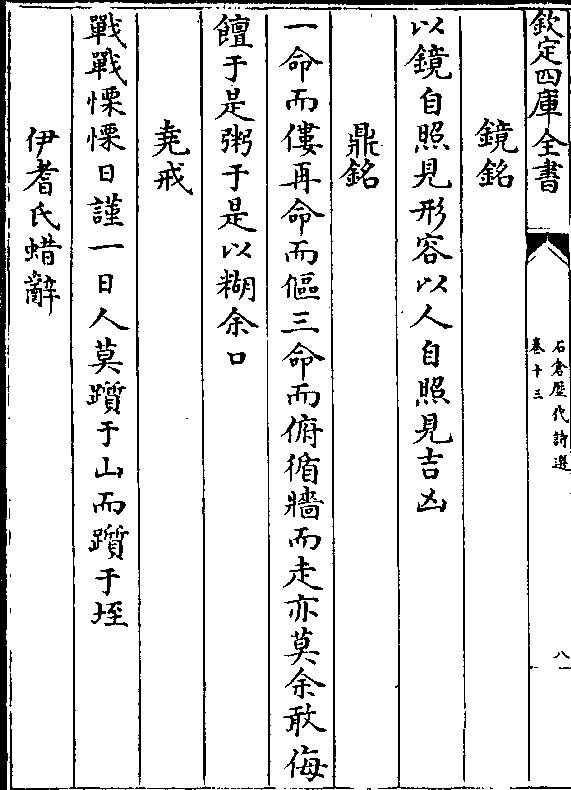 欽定四庫全書
石倉歷代詩選
卷十三
八
鏡銘
以鏡自照見形容以人自照見吉凶
鼎銘
一命而僂再命而傴三命而俯循牆而走亦莫余敢侮
饘于是粥于是以糊余口
堯戒
戰戰慄慄日謹一日人莫躓于山而躓于垤
伊耆氏蜡辭